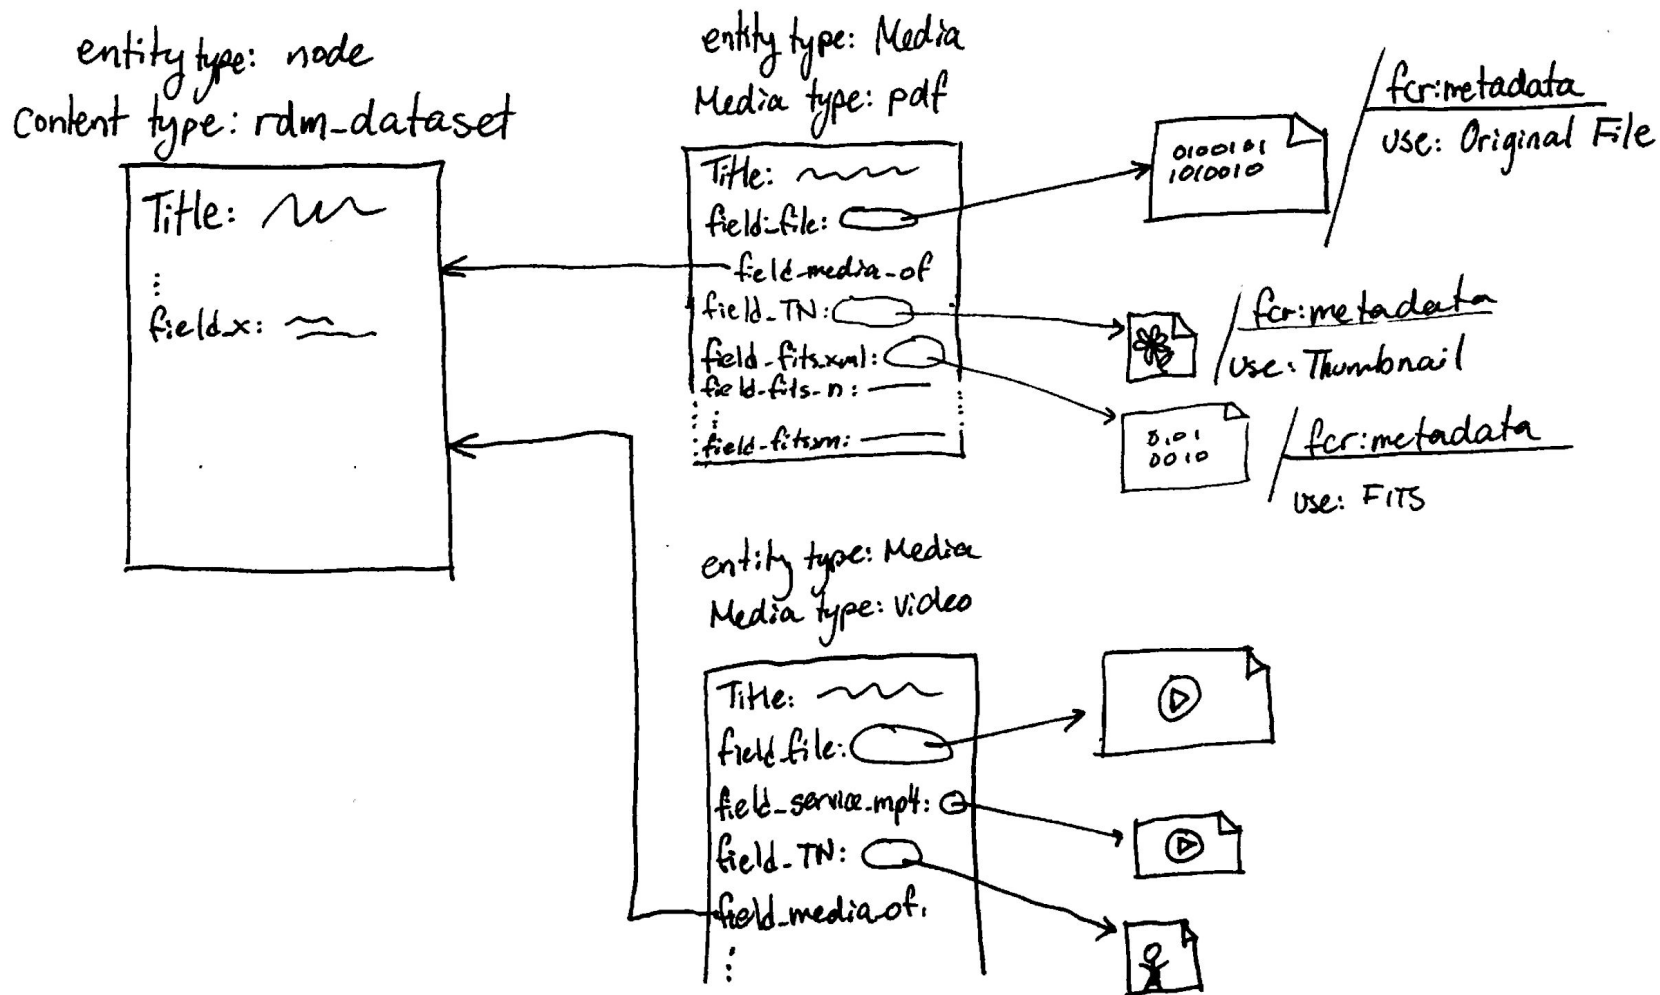 entity type: node
content type: rdm_dataset
Title:
field_x:
entity type: Media
Media type: pdf
Title:
field_file:
field_media_of
field_TN:
field_fits.xml:
field_fits_n:
field_fitsxn:
0100101
1010010
fcr:metadata
use: Original File
fcr:metadata
use: Thumbnail
0101
0010
fcr:metadata
use: FITS
entity type: Media
Media type: video
Title:
field_file:
field_service_mp4:
field_TN:
field_media_of.